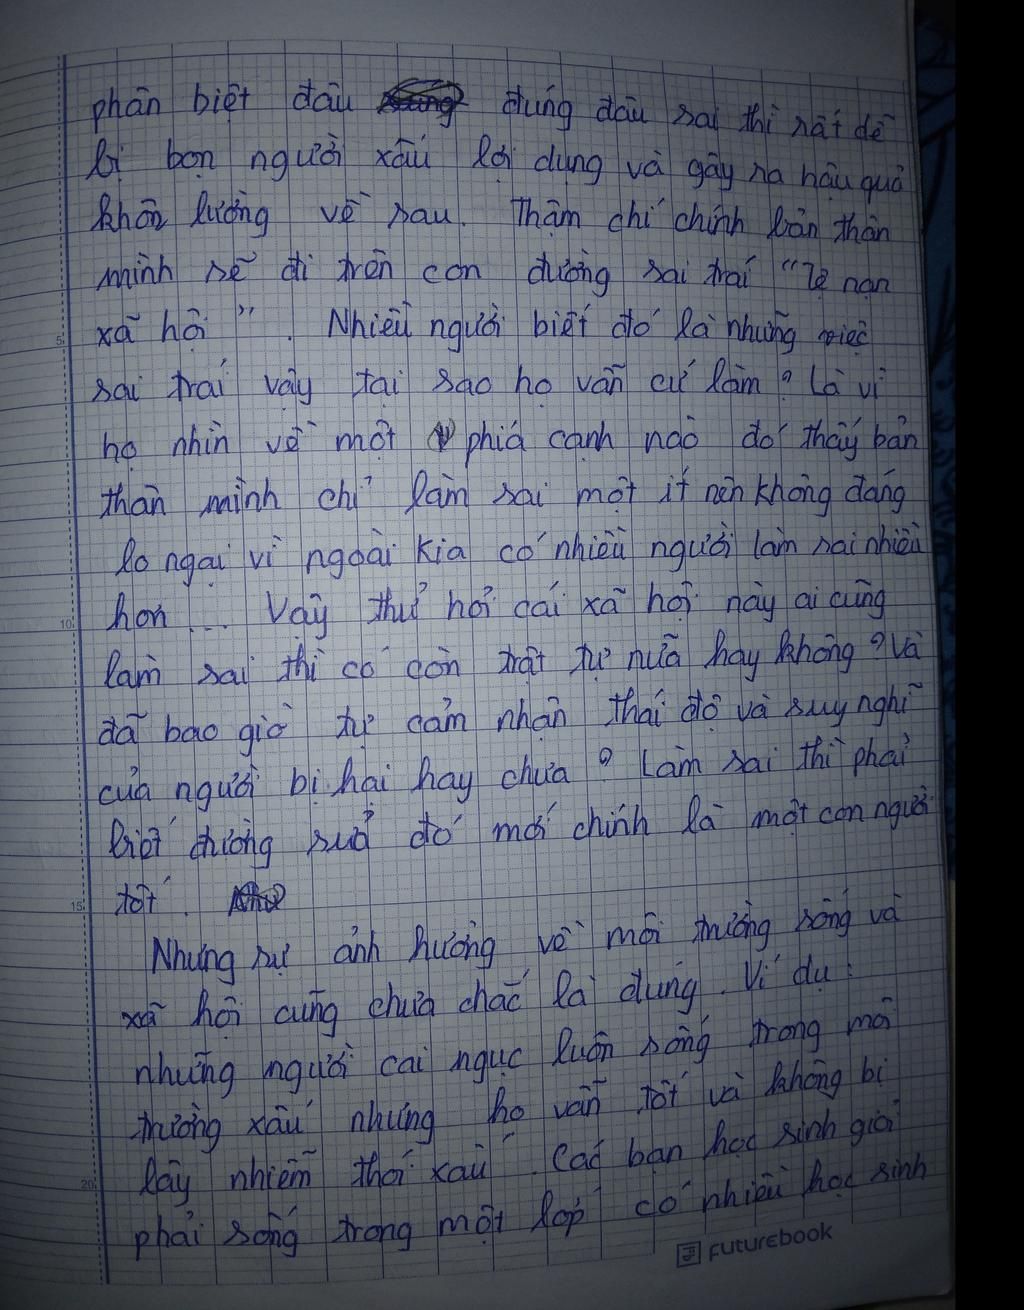 phân biệt đâu đúng đâu sai thì rất dễ
bị bọn người xấu lợi dụng và gây ra hậu quả
khôn lường về sau. Thậm chí chính bản thân
mình sẽ đi trên con đường sai trái "Tệ nạn
5 xã hội". Nhiều người biết đó là những việc
sai trái vậy tại sao họ vẫn cứ làm? Là vì
họ nhìn về một phía cạnh nào đó thấy bản
thân mình chỉ làm sai một ít nên không đáng
lo ngại vì ngoài kia có nhiều người làm sai nhiều
10 hơn ... Vậy thử hỏi cái xã hội này ai cũng
làm sai thì có còn trật tự nữa hay không? Và
đã bao giờ tự cảm nhận thái độ và suy nghĩ
của người bị hại hay chưa? Làm sai thì phải
biết đường sửa đó mới chính là một con người
15 tốt.
Nhưng sự ảnh hưởng về môi trường sống và
xã hội cũng chưa chắc là đúng. Ví dụ:
những người cai ngục luôn sống trong môi
trường xấu nhưng họ vẫn tốt và không bị
20 lây nhiễm thói xấu. Các bạn học sinh giỏi
phải sống trong một lớp có nhiều học sinh
FUTUREBOOK